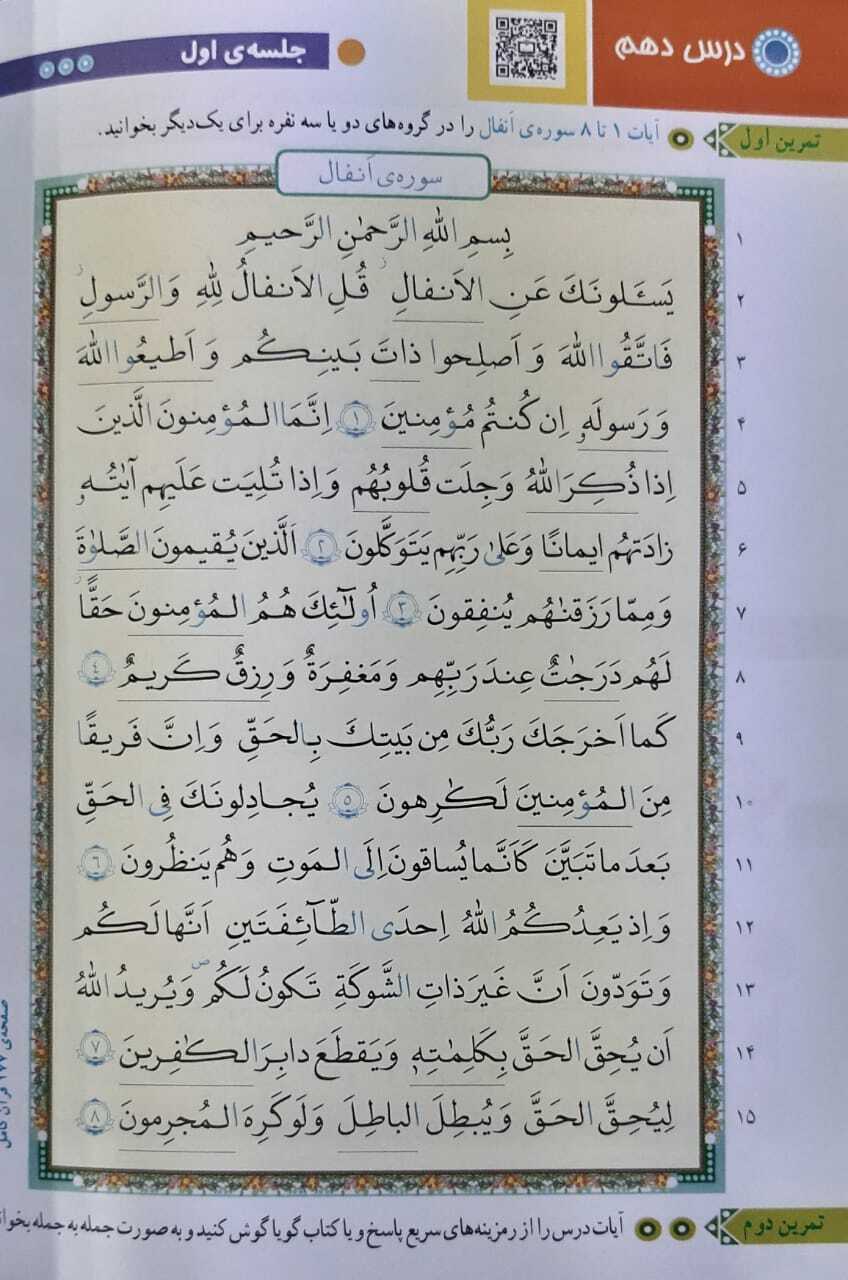 درس دهم
جلسه‌ی اول
تمرین اول
آیات ۱ تا ۸ سوره‌ی اَنفال را در گروه‌های دو یا سه نفره برای یک‌دیگر بخوانید.
سوره‌ی اَنفال
۱ بِسمِ اللهِ الرَّحمٰنِ الرَّحیمِ
۲ یَسئَلونَکَ عَنِ الاَنفالِ ۖ قُلِ الاَنفالُ لِلّٰهِ وَ الرَّسولِ ۖ
۳ فَاتَّقُوا اللهَ وَ اَصلِحوا ذاتَ بَینِکُم وَ اَطیعُوا اللهَ
۴ وَ رَسولَهٗ اِن کُنتُم مُؤمِنینَ ﴿۱﴾ اِنَّمَا المُؤمِنونَ الَّذینَ
۵ اِذا ذُکِرَ اللهُ وَجِلَت قُلوبُهُم وَ اِذا تُلِیَت عَلَیهِم آیاتُهٗ
۶ زادَتهُم ایمانًا وَ عَلیٰ رَبِّهِم یَتَوَکَّلونَ ﴿۲﴾ اَلَّذینَ یُقیمونَ الصَّلوٰةَ
۷ وَ مِمّا رَزَقنٰهُم یُنفِقونَ ﴿۳﴾ اُولٰٓئِکَ هُمُ المُؤمِنونَ حَقًّا ۚ
۸ لَهُم دَرَجٰتٌ عِندَ رَبِّهِم وَ مَغفِرَةٌ وَ رِزقٌ کَریمٌ ﴿۴﴾
۹ کَما اَخرَجَکَ رَبُّکَ مِن بَیتِکَ بِالحَقِّ وَ اِنَّ فَریقًا
۱۰ مِنَ المُؤمِنینَ لَکٰرِهونَ ﴿۵﴾ یُجادِلونَکَ فِی الحَقِّ
۱۱ بَعدَ ما تَبَیَّنَ کَاَنَّما یُساقونَ اِلَی المَوتِ وَ هُم یَنظُرونَ ﴿۶﴾
۱۲ وَ اِذ یَعِدُکُمُ اللهُ اِحدَی الطّآئِفَتَینِ اَنَّها لَکُم
۱۳ وَ تَوَدّونَ اَنَّ غَیرَ ذاتِ الشَّوکَةِ تَکونُ لَکُم وَ یُریدُ اللهُ
۱۴ اَن یُحِقَّ الحَقَّ بِکَلِمٰتِهٖ وَ یَقطَعَ دابِرَ الکٰفِرینَ ﴿۷﴾
۱۵ لِیُحِقَّ الحَقَّ وَ یُبطِلَ الباطِلَ وَ لَو کَرِهَ المُجرِمونَ ﴿۸﴾
صفحه‌ی ۱۷۷ قرآن کامل
تمرین دوم
آیات درس را از رمزینه‌های سریع پاسخ و یا کتاب گویا گوش کنید و به صورت جمله به جمله